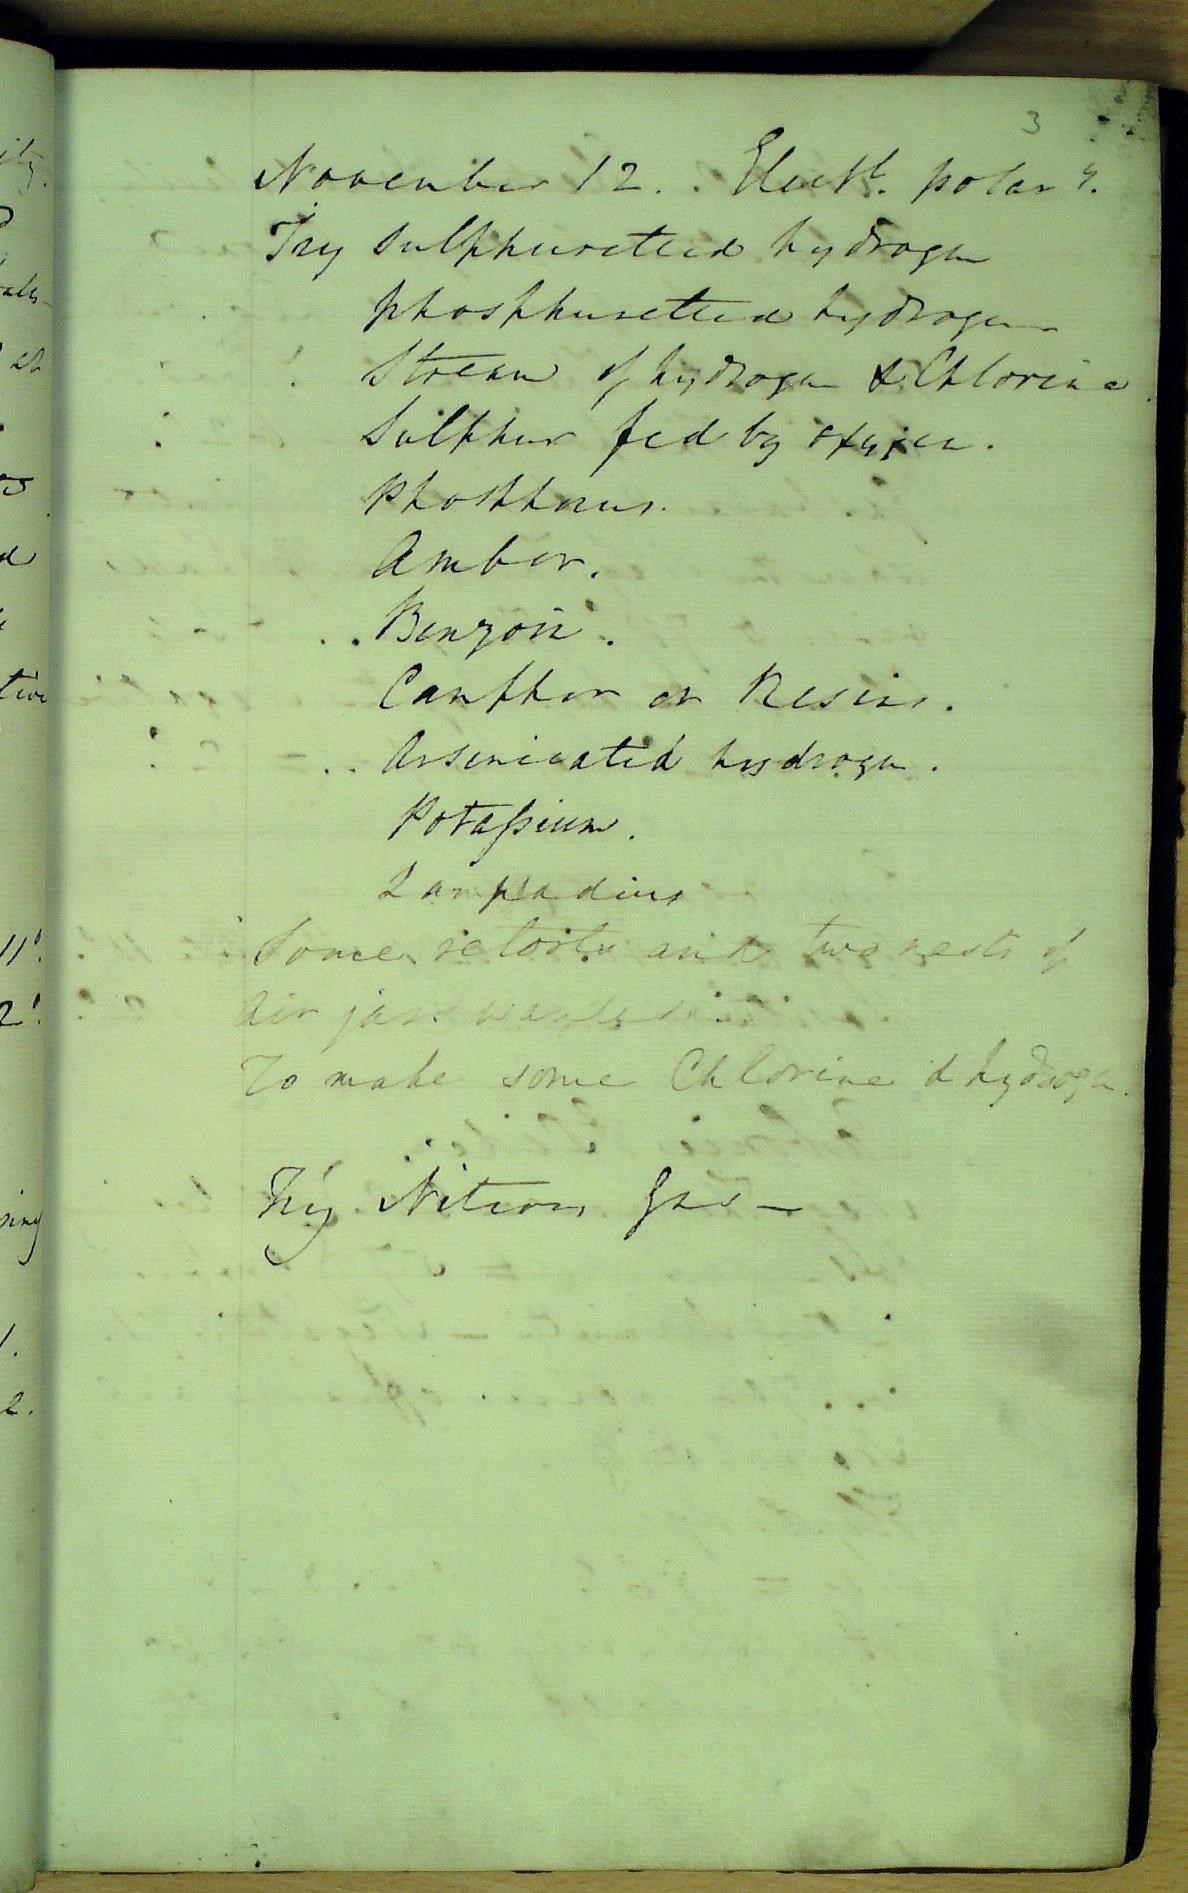 3
November 12. Electl. polary.
Try sulphuretted hydrogen
phosphuretted hydrogen
Stream of hydrogen & Chlorine
Sulphur fed by oxygen.
Phosphorus.
Amber.
Benzoin.
Camphor or Resins.
Arsenicated hydrogen.
Potaſsium.
Lampadius
Some retorts and two nests of
Air jars wanted
To make some Chlorine & hydrogen.
Try Nitrous Gas –